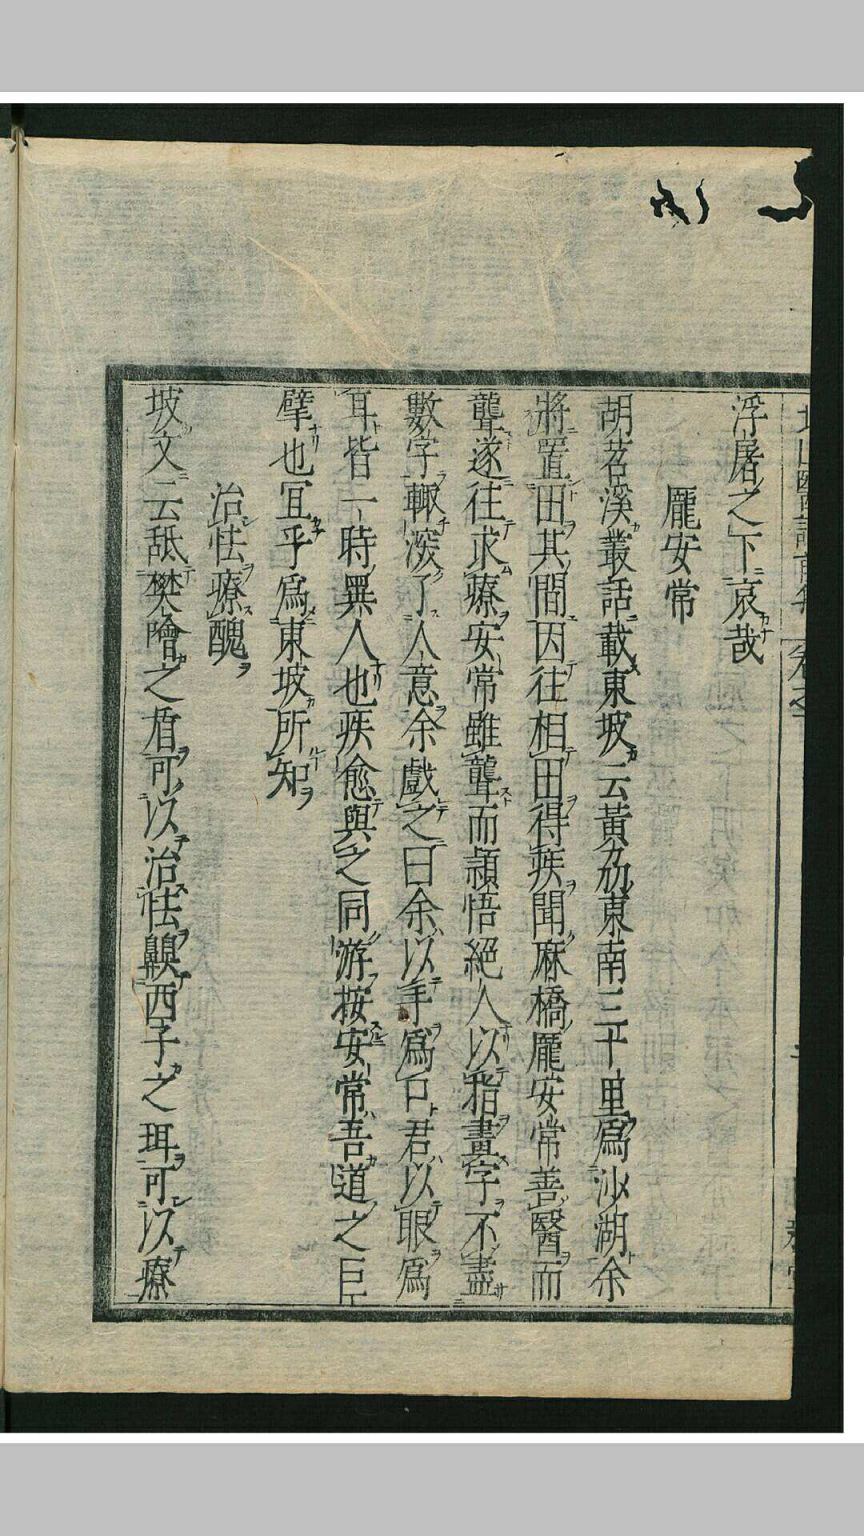 浮屠之下哀哉
龐安常
胡苕溪叢話載東坡云黃州東南三十里爲沙湖余
將置田其間因往相田得疾聞麻橋龐安常善醫而
聾遂往求療安常雖聾而頴悟絕人以指畫字不盡
數字輙深了人意余戲之曰余以手爲口君以眼爲
耳皆一時異人也疾愈與之同游按安常吾道之巨
擘也冝乎爲東坡所知
治怯療醜
坡文云舐樊噲之盾可以治怯齅西子之珥可以療